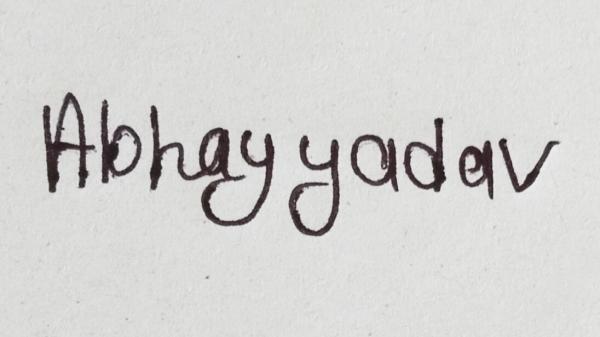 Abhay yadav